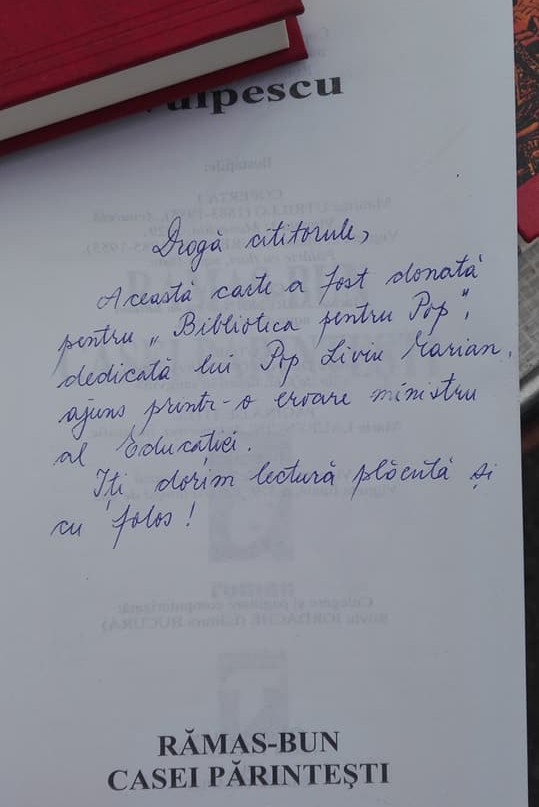 ulpescu
Dragă cititorule,
Această carte a fost donată
pentru „Biblioteca pentru Pop",
dedicată lui Pop Liviu Marian,
ajuns printr-o eroare ministru
al Educației.
Iți dorim lectură plăcută și
cu folos!
RĂMAS-BUN
CASEI PĂRINTEȘTI